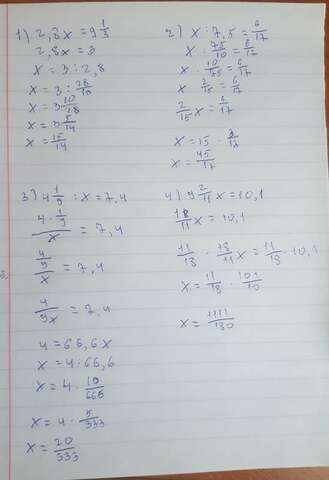 1) 2,8x = 9 1/3
2,8x = 3
x = 3 : 2,8
x = 3 : 28/10
x = 3 · 10/28
x = 3 · 5/14
x = 15/14
2) x : 7,5 = 6/17
x : 75/10 = 6/17
x · 10/75 = 6/17
x · 2/15 = 6/17
2/15 x = 6/17
x = 15 · 3/17
x = 45/17
3) 4 1/9 : x = 7,4
4 · 1/9 / x = 7,4
4/9 / x = 7,4
4/9x = 7,4
4 = 66,6x
x = 4 : 66,6
x = 4 · 10/666
x = 4 · 5/333
x = 20/333
4) 9 2/11 x = 10,1
18/11 x = 10,1
11/18 · 18/11 x = 11/18 · 10,1
x = 11/18 · 101/10
x = 1111/180